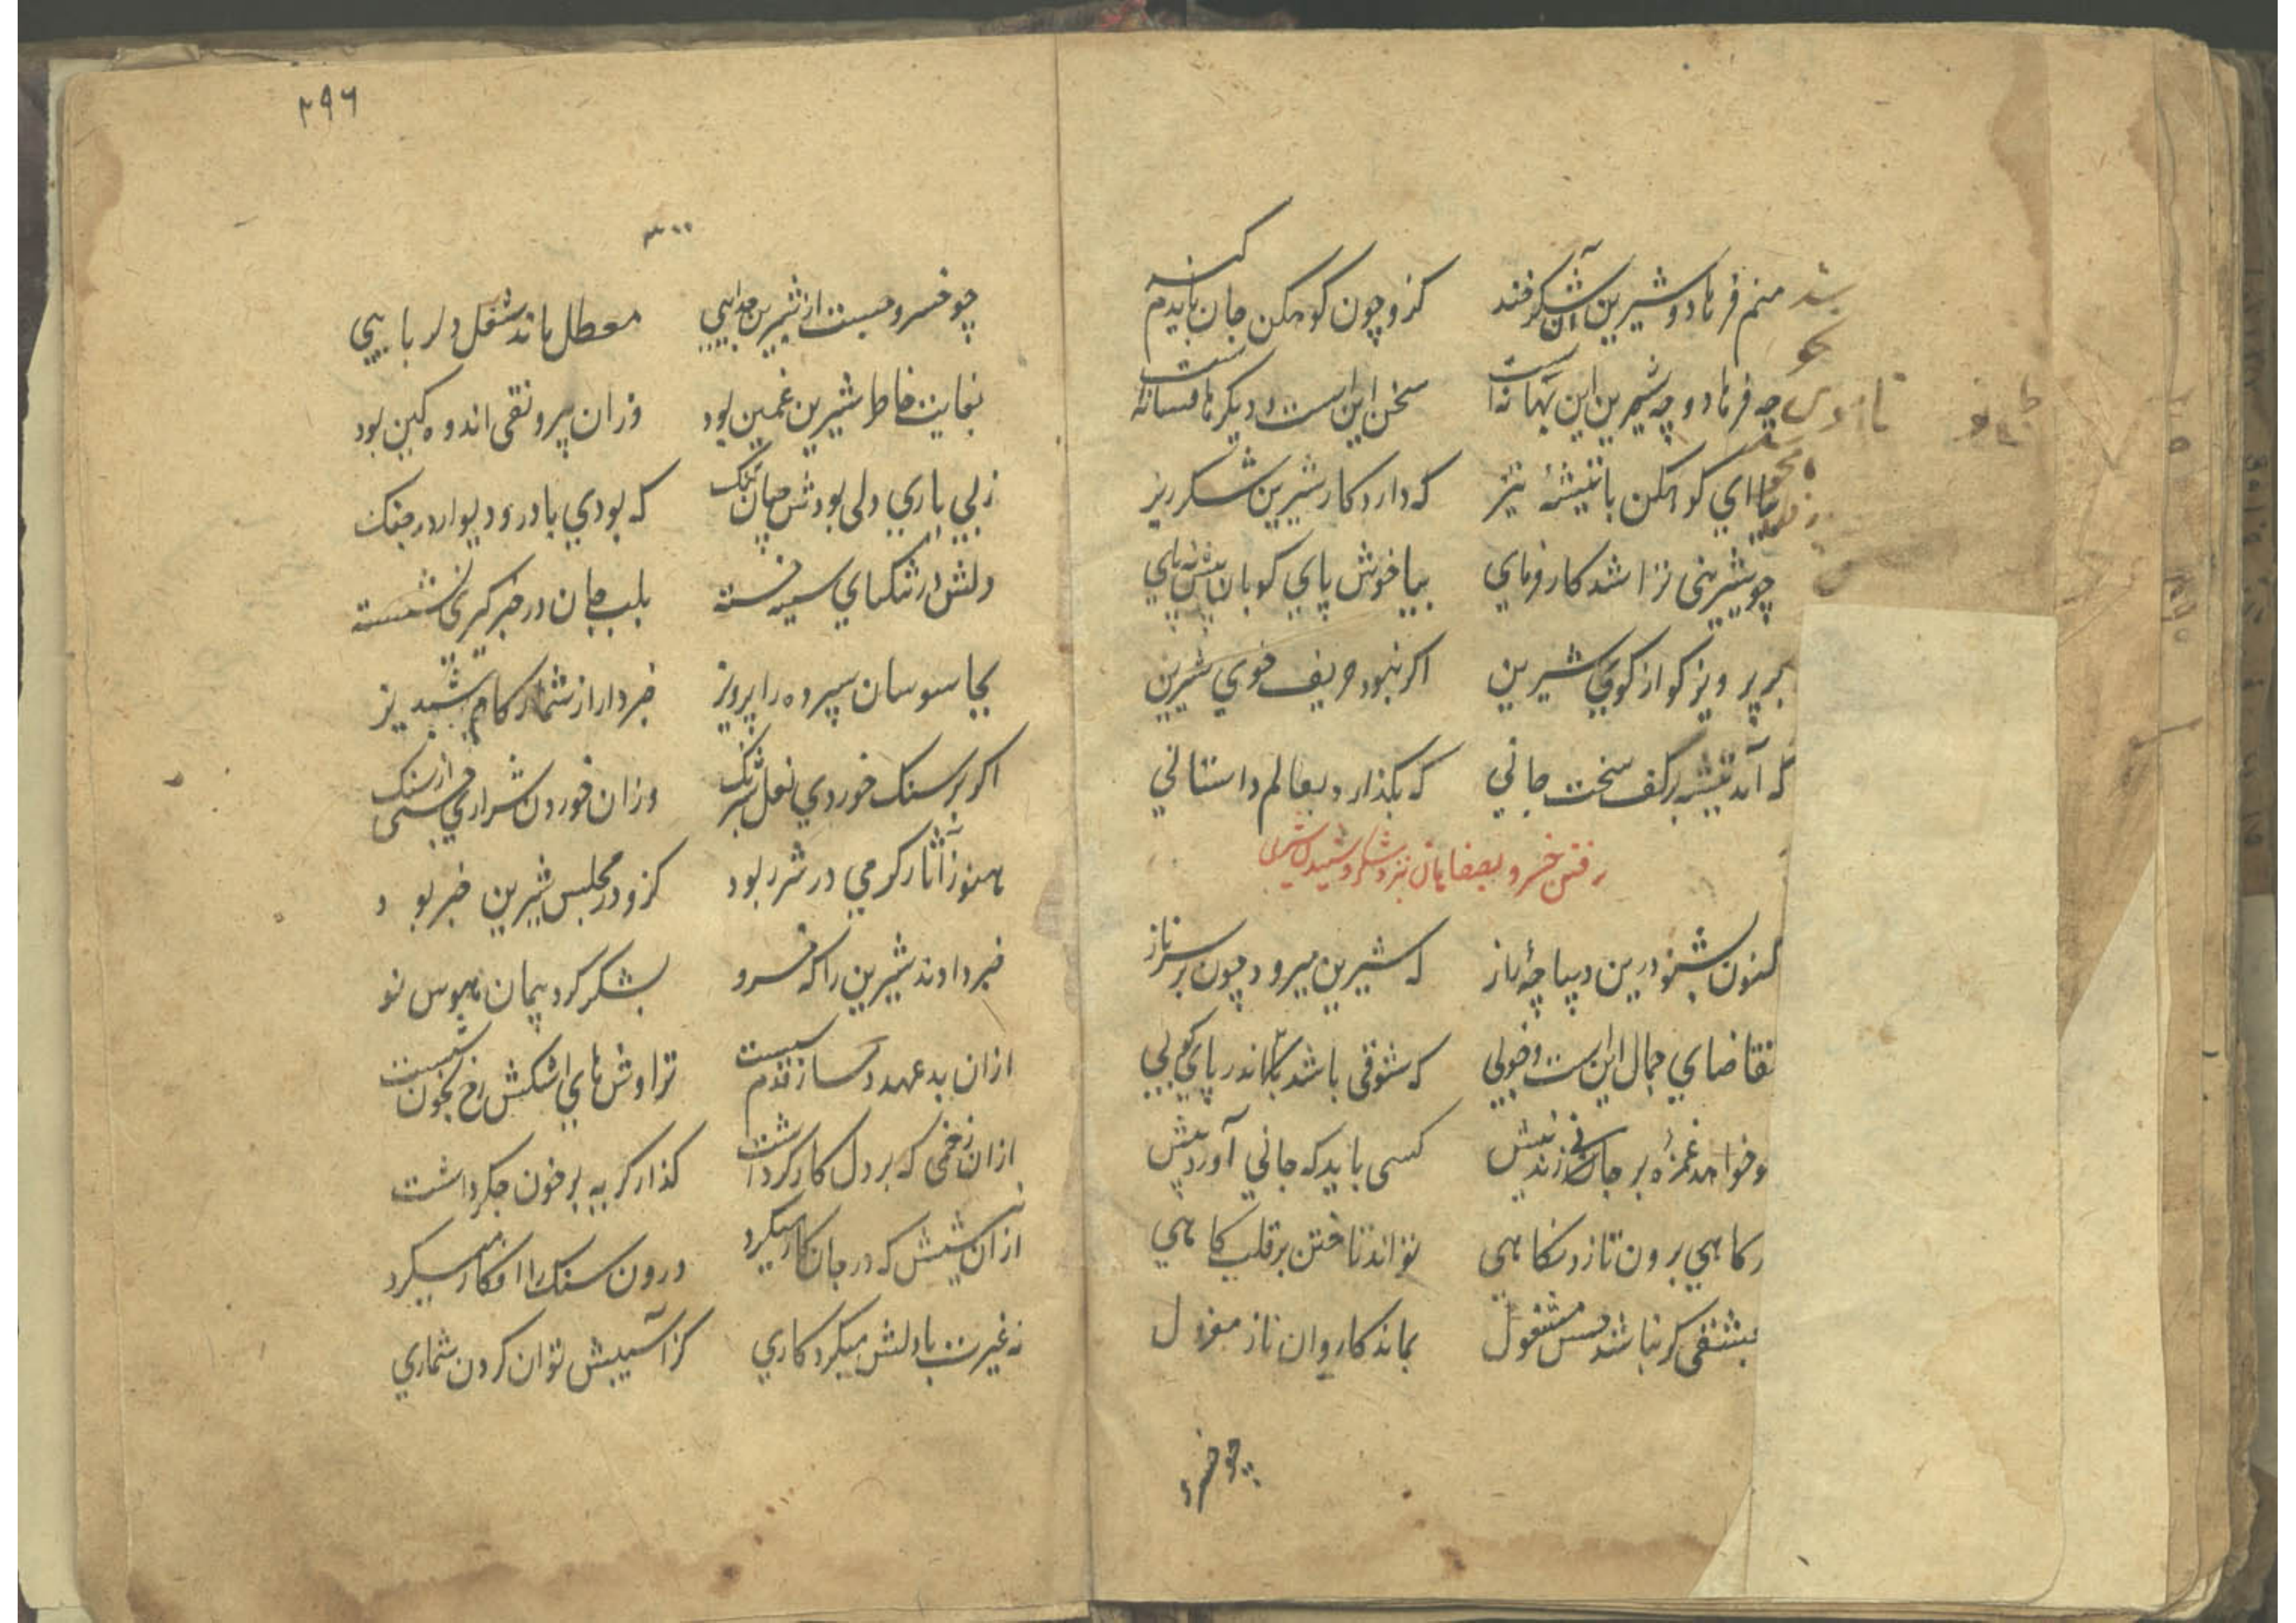 منم فرهاد و شیرین آن شکرخند کزو چون کوهکن جان بایدم کند
چه فرهاد و چه شیرین این بهانه است سخن این است و دیگرها فسانه است
بیا ای کوهکن با تیشهٔ تیز که دارد کار شیرین شکرریز
چو شیرینی ترا شد کارفرمای بیا خوش پای کوبان پیش نه پای
برپرویز کو از کوی شیرین اگر نبود حریف خوی شیرین
که آمد تیشه بر کف سخت جانی که بگذارد بعالم داستانی
رفتن خسرو بصفاهان نزد شکر و شنیدن شیرین
کنون بشنو درین دیباچهٔ راز که شیرین میرود چون بر سر ناز
تقاضای جمال این است و خوبی که شوقی باشد اندر پای کوبی
چو خواهد غمزهٔ بر جانی زند نیش کسی باید که جانی آورد پیش
نکاهی برون تازد نکاهی تواند تاختن بر قلب کاهی
بعشقی کر نباشد حسن مشغول بماند کاروان ناز معزول
چو خسرو
۲۹۶
۳۰۰
چو خسرو جست از شیرین جدایی معطل ماند شغل دلربایی
بغایت خاطر شیرین غمین بود وزان بی رونقی اندوه کین بود
ز بی یاری دلی بودش چنان تنک که بودی با در و دیوار در جنک
دلش در تنکنای سینه خسته بلب جان در خبرکیری نشسته
بجاسوسان سپرده راه پرویز خبردار از شمار کام شبدیز
اکر بر سنک خوردی نعل شبرنک وزان خوردن شراری جستی از سنک
هنوز آثار کرمی در شرر بود کزو در مجلس شیرین خبر بود
خبر دادند شیرین را که خسرو بشکر کرد پیمان هوس نو
ازان بدعهد دمساز قدم سست تراوش‌های اشکش رخ بخون شست
ازان زخمی که بر دل کارکر داشت کذار کریه بر خون جکر داشت
ازان نیشش که در جان کار میکرد درون سنک را افکار میکرد
نه غیرت با دلش میکرد کاری کز آسیبش توان کردن شماری